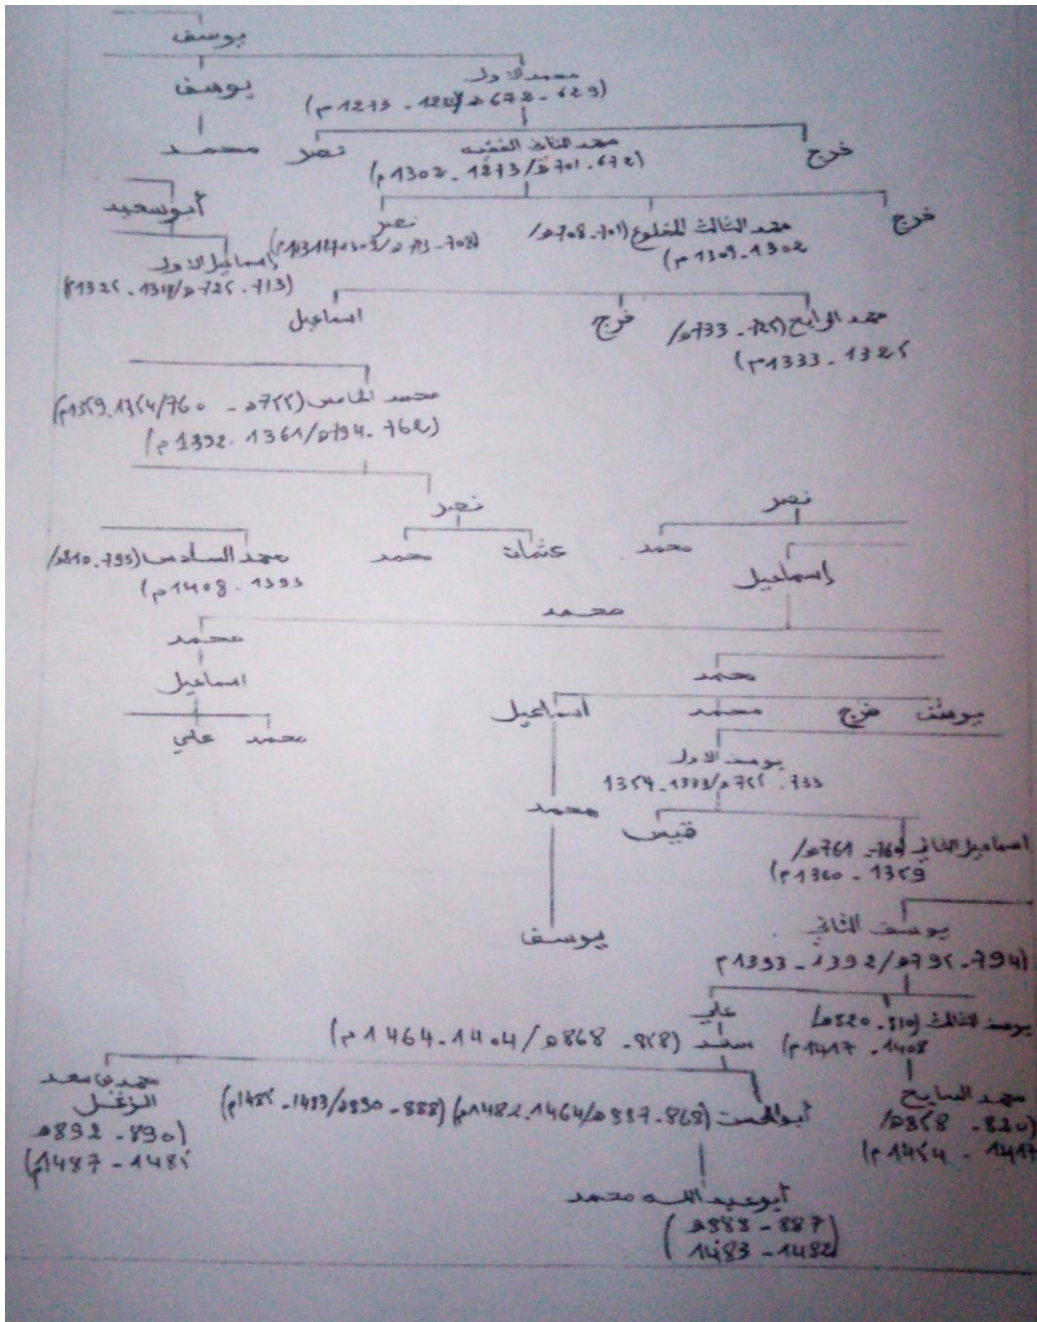 يوسف
يوسف
محمد الاول
(629 - 672هـ/1231 - 1273م)
محمد
نصر
محمد الثاني الفقيه
(672 - 701هـ/1273 - 1302م)
فرج
أبو سعيد
نصر
(708 - 713هـ/
محمد الثالث المخلوع (701 - 708هـ/
1302 - 1309م)
فرج
إسماعيل الاول
(713 - 725هـ/1314 - 1325م)
اسماعيل
فرج
محمد الرابع (725 - 733هـ/
1325 - 1333م)
محمد الخامس (755هـ - 760/1354 - 1359م)
(762 - 794هـ/1361 - 1392م)
نصر
نصر
محمد السادس (795 - 810هـ/
1393 - 1408م)
محمد
عثمان
محمد
إسماعيل
محمد
محمد
اسماعيل
محمد
علي
محمد
اسماعيل
محمد
فرج
يوسف
يوسف الاول
733 - 755هـ/1333 - 1354
محمد
قيس
اسماعيل الثاني (760 - 761هـ/
1359 - 1360م)
يوسف
يوسف الثاني
(794 - 795هـ/1392 - 1393م
علي
سعد (858 - 868هـ/1404 - 1464م)
يوسف الثالث (810 - 820هـ/
1408 - 1417م)
محمد بن سعد
الزغل
(890 - 892هـ
1485 - 1487م)
أبو الحسن (868 - 887هـ/1464 - 1482م) (888 - 890هـ/1483 - 1485م)
محمد السابع
(820 - 858هـ/
1417 - 1454م)
أبو عبد الله محمد
(887 - 888هـ
1482 - 1483)